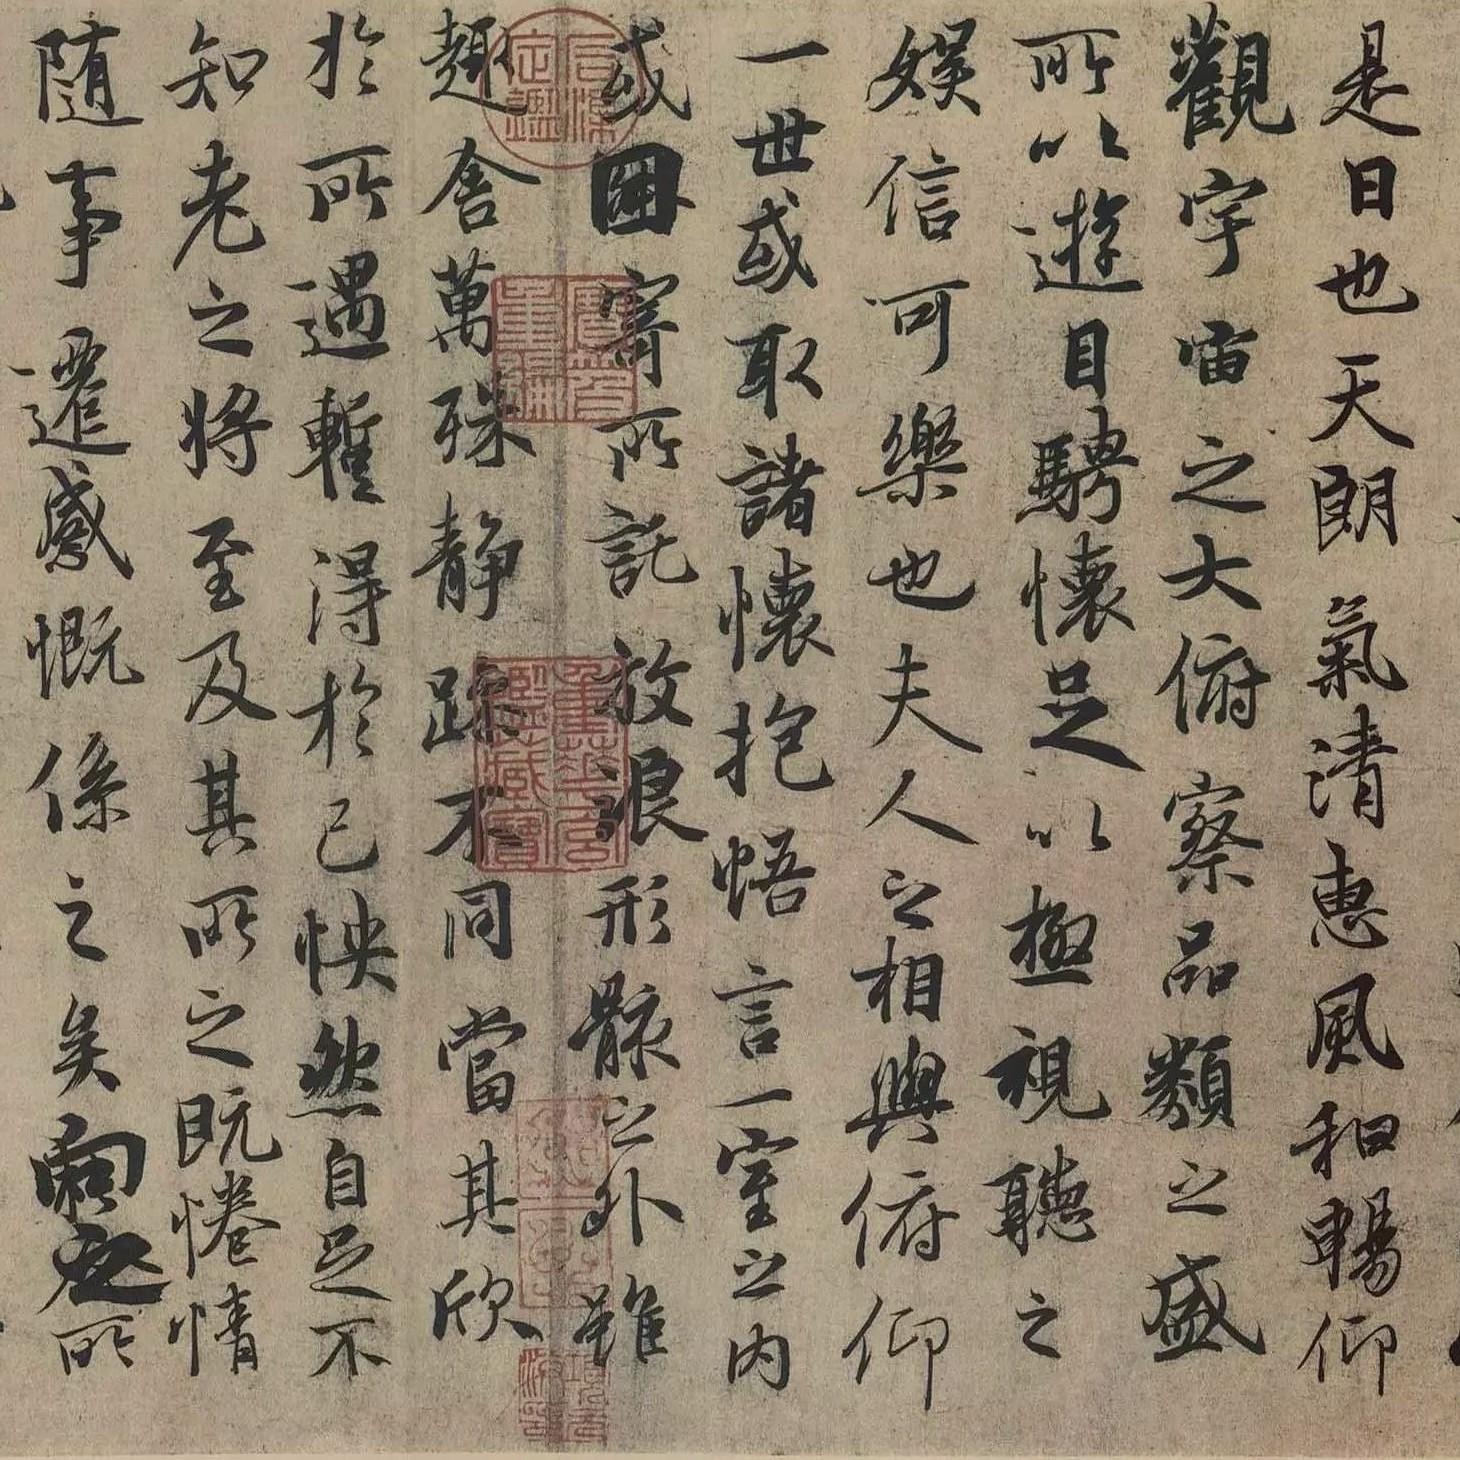 是日也天朗氣清惠風和暢仰
觀宇宙之大俯察品類之盛
所以遊目騁懷足以極視聽之
娛信可樂也夫人之相與俯仰
一世或取諸懷抱悟言一室之內
或因寄所託放浪形骸之外雖
趣舍萬殊静躁不同當其欣
於所遇暫得於己怏然自足不
知老之將至及其所之既惓情
随事遷感慨係之矣向之所